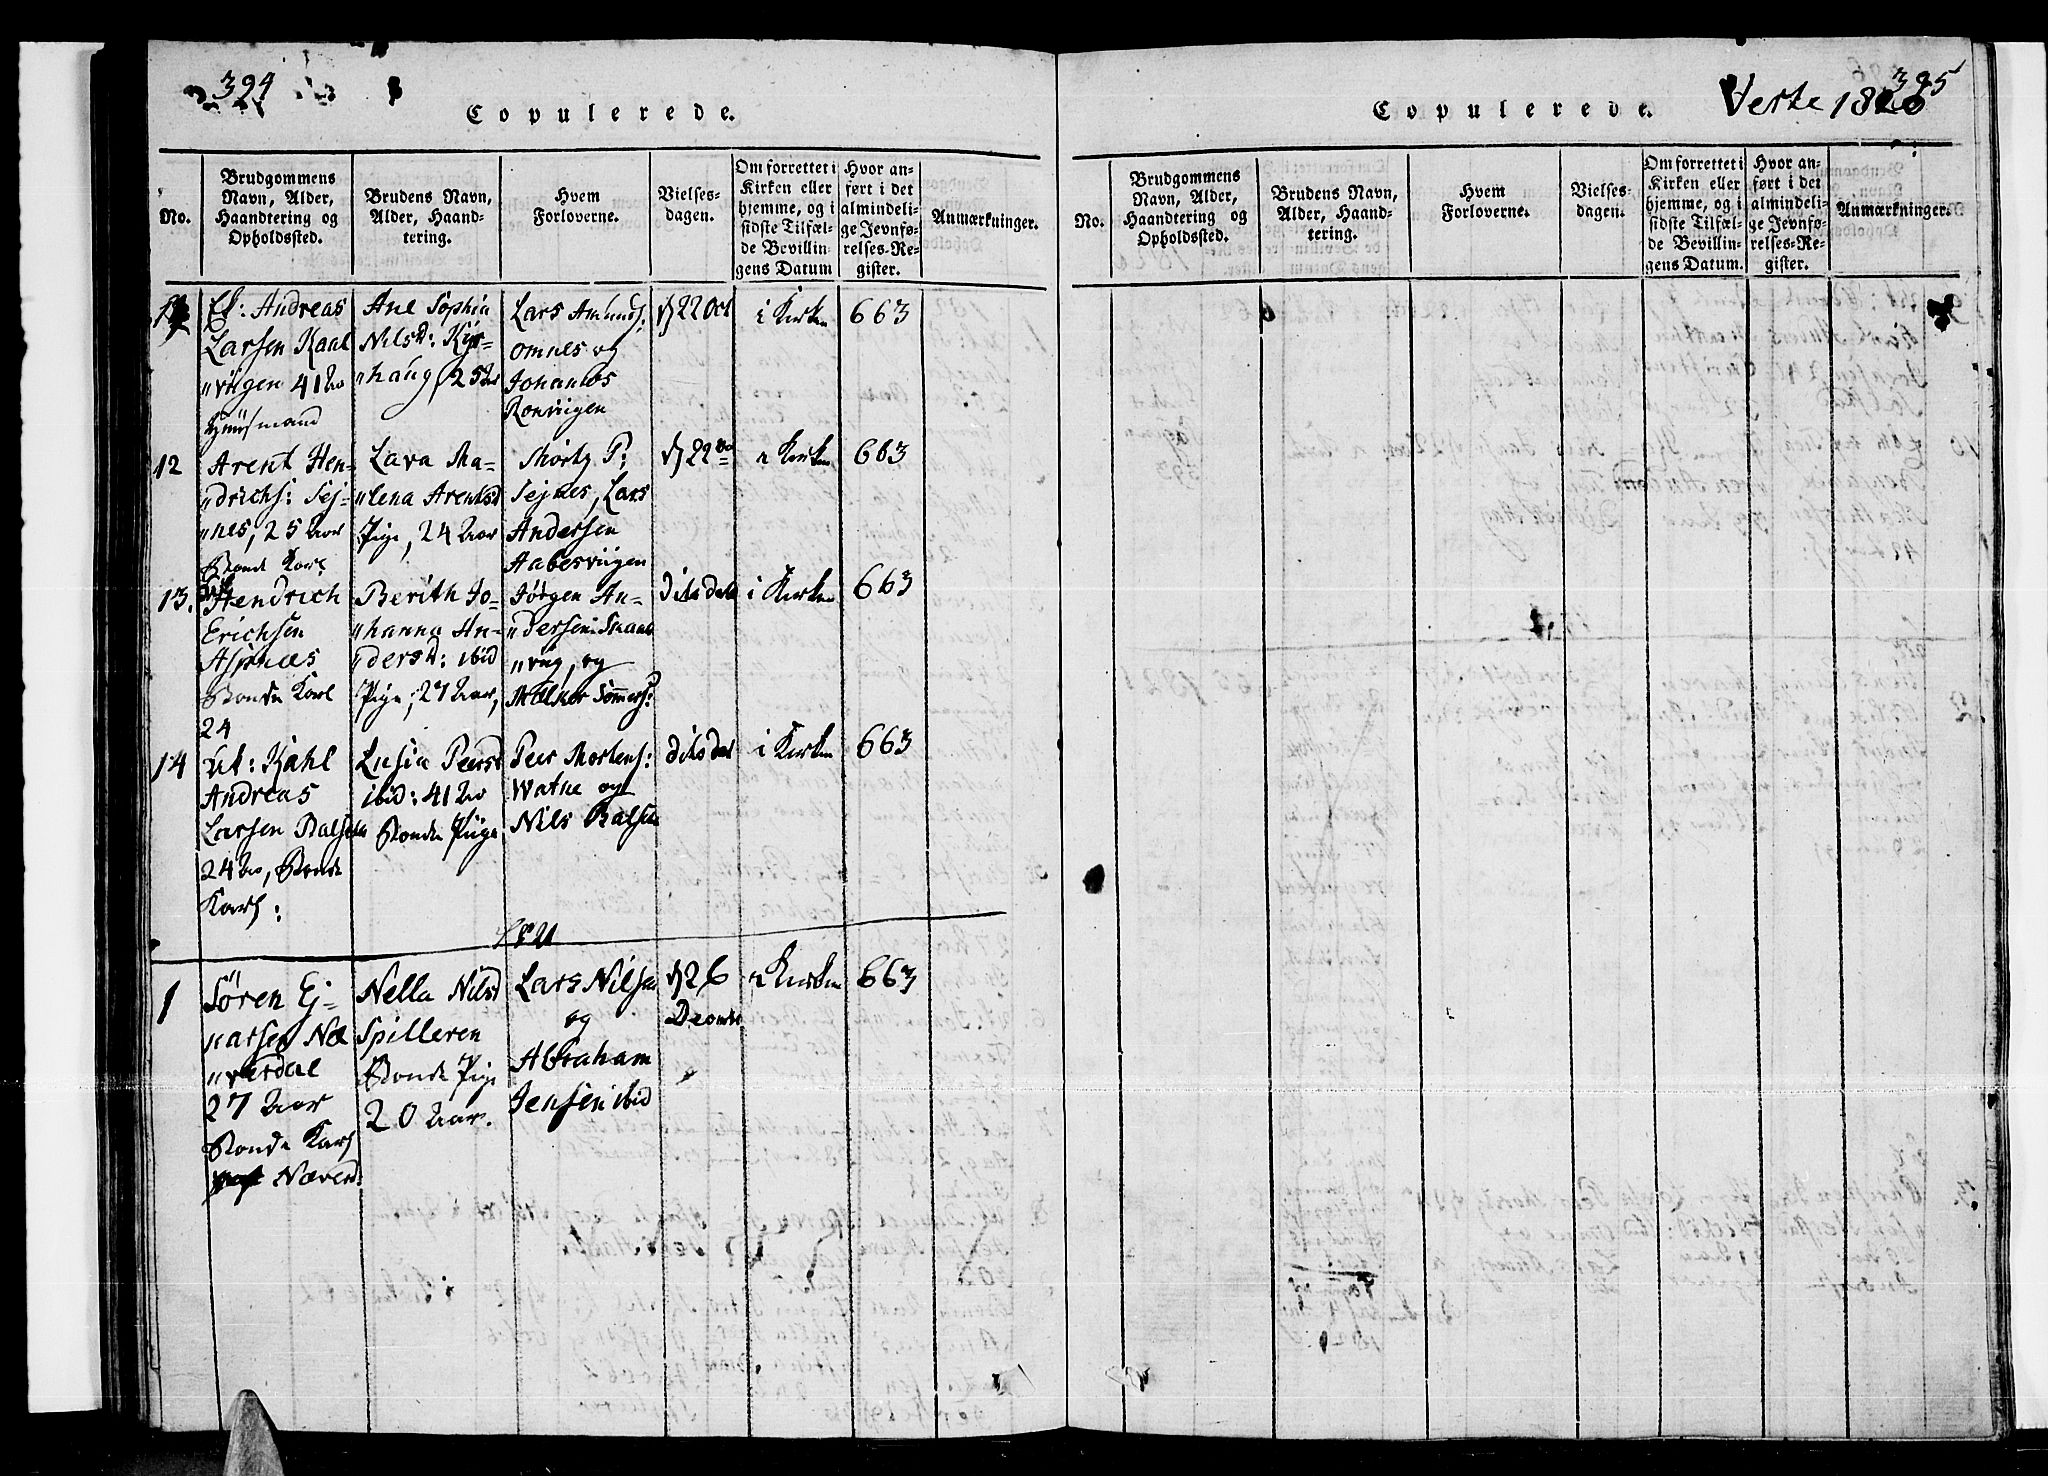 394
Copulerede.
No.
Brudgommens
Navn, Alder,
Haandtering og
Opholdssted.
Brudens Navn,
Alder, Haand-
tering.
Hvem
Forloverne.
Vielses-
dagen.
Om forrettet i
Kirken eller
hjemme, og i
sidste Tilfæl-
de Bevillin-
gens Datum
Hvor an-
ført i det
almindeli-
ge Jevnfø-
relses-Re-
gister.
Anmærkninger.
Andreas
Larsen Kaal
"viigen 41
Huusmand
Ane Sophia
Nilsd:
"haug, 25
Lars
omnes og
Johannes
Ronviigen
22 Oct
i Kirken
663
12
Arent Hen-
"drichs: Sej-
"nes, 25 Aar
Bonde Karl
Lava Ma-
"lena Arentsd
Pige, 24 Aar
Mortg P:
Sejnes, Lars
Andersen
Aabesviigen
22
i Kirken
663
13.
Hendrich
Erichsen
Aspnæs
Bonde Karl
24
Berith Jo-
"hanna An-
"dersd: ibid
Pige, 27 Aar,
Jørgen An-
"dersen: Snaae
"viig, og
Dito Dato
i Kirken
663
14
Ut: Kahl
Andreas
Larsen Balsen
24 Aar, Bonde
Karl:
Lusia Peersd
ibid: 41
Bonde Piige
Peer Mortens:
Watne og
Nils Balsen
dito Dat
i Kirken
663
1
Søren Ej-
narsen Næ
"verdal
27 Aar
Bonde Karl
Næverd.
Nella Nilsd
Spilleren
Bonde Pige
20 Aar.
Lars Nilsen
og
Abraham
Jensen ibid
26
i Kirken
663
395
Verte 1820
Copulerede.
No.
Brudgommens
Navn, Alder,
Haandtering og
Opholdssted.
Brudens Navn,
Alder, Haand-
tering.
Hvem
Forloverne.
Vielses-
dagen.
Om forrettet i
Kirken eller
hjemme, og i
sidste Tilfæl-
de Bevillin-
gens Datum.
Hvor an-
ført i det
almindeli-
ge Jevnfø-
relses-Re-
gister.
Anmærkninger.